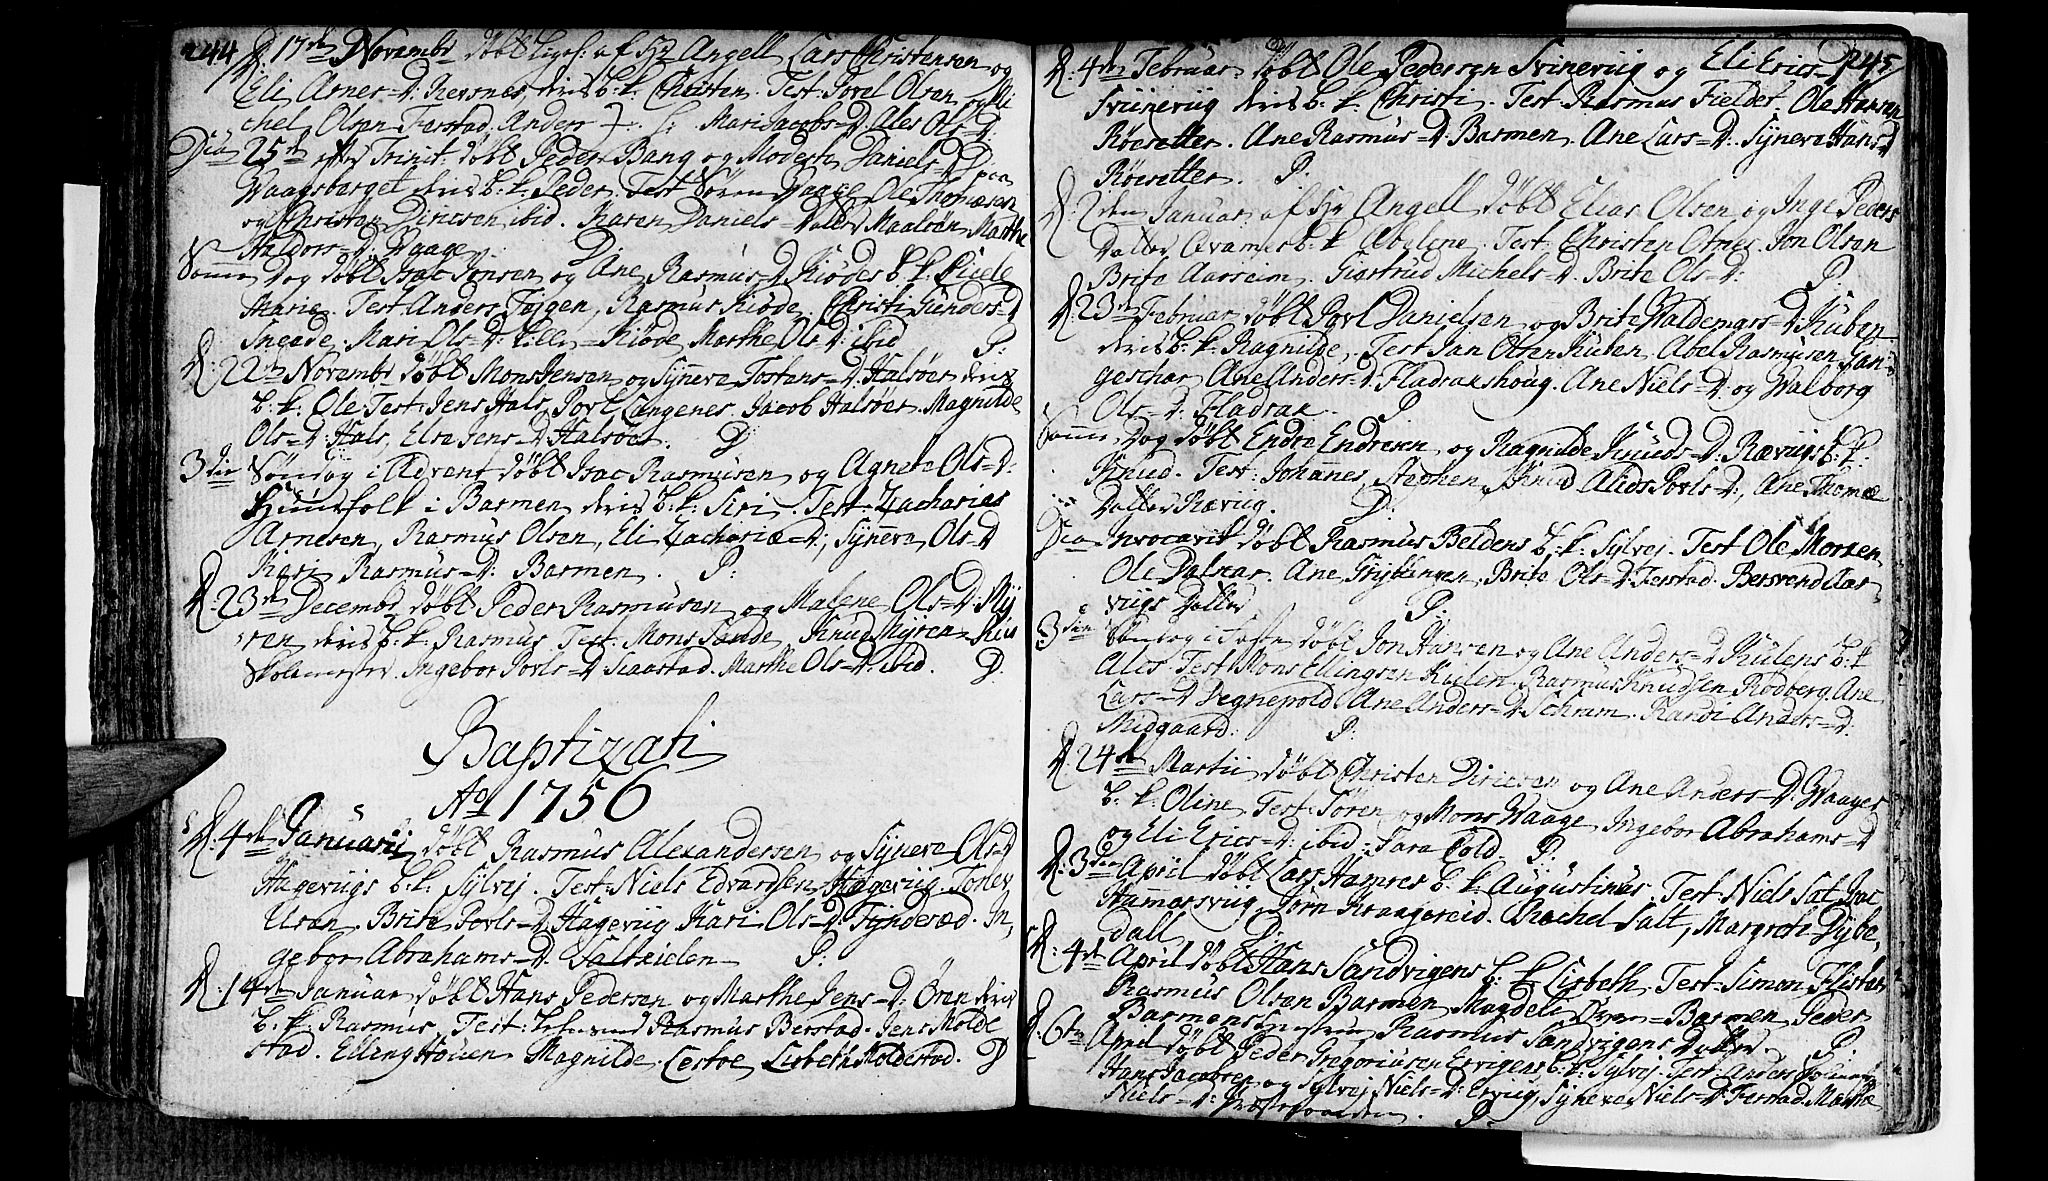 244
D: 17de Novembr døbt ligel: af Hr Angell Lars Christensen og
Eli Arnes-D: Refsnes, deris b: k: Christen. Test: Povel Olsen
chel Olsen Ferstad Anders Mari Jacobs-D. Ales Ols-D:
Dca 25de efter Trinit: døbt Peder Bang og Modesta Daniels-D paa
Waagsberget deris b: k: Peder. Test Søren Waage Ole Thomæsen
og Christen Diricsen ibid. Karen Daniels-Datter Maaløen, Marthe
Haldors-D. Waage. D.
Samme Dag døbt Isac Jonsen og Ane Rasmus-D Riødes b: k:
Marie. Test. Anders Føjgen, Rasmus Riøde. Christi Gunders-D
Mari Ols-D: Lille-Riøde Marthe Ols-D: ibid P:
D: 22de Novembr døbt Mons Jensen og Synneve Tostens-D: Halsøer deris
b: k: Ole Test: Jens Hals, Povl Langenes. Jacob Halsøer. Magnilde
Ols-D: Hals, Else Jens-D: Halsøer. D
3die Søndag i Advent døbt Isac Rasmusen og Agnete Ols-D:
Huusfolk i Barmen deris b: k: Siri. Test: Zacharias
Arnesen, Rasmus Olsen, Eli Zachariæ-D:, Synneve Ols-D
Kari Rasmus-D: Barmen. P:
D: 23de Decembr døbt Peder Rasmusen og Malene Ols-D: My
ren deris b: k: Rasmus Test: Mons Sande, Knud Myren
Skolemester. Ingebor Povls-D: Kaastad. Marthe Ols-D: ibid. D.
Baptizati
Ao 1756
D: 4de Januarij døbt Rasmus Alexandersen og Syneve Ols-D
Hagevigs b: k: Sylvej. Test: Niels Edvardsen Hagevig. Torlev
Uran. Brite Povls-D: Hagevig Kari Ols-D: Tynderæd. In,
gebor Abrahams-D. Saltkielen P:
D: 14de Januar døbt Hans Pedersen og Marthe Jens-D: Øren deris
b: k: Rasmus. Test: Rasmus Berstad. Jens Molde
stad. Elling Houen Magnilde Lestoe Lisbeth Moldestad. D
245
D: 4de Februar døbt Ole Pedersen Sviinevig og Eli Erics-D
Sviinevig deris b: k: Christi. Test: Rasmus Fielde. Ole Hansen
Røesetter. Ane Rasmus-D: Barmen. Ane Lars-D: Syneve Hans-D
Røesetter. P.
D: 2den Januar af Hr Angell døbt Elias Olsen og Inge Peders
Datter b: k Abelene. Test: Christen Otnes Jon Olsen
Brite Aarseim. Giertrud Michels-D: Brite Ols-D: P.
D: 23de Februar døbt Povl Danielsen og Brite Waldemars-D: Kuben
deris b: k: Ragnilde, Test: Jan Olsen Kuben, Abel Rasmusen San-
geschar Ane Anders-D: Fladrakshoug. Ane Niels-D: og Walborg
Ols-D: Fladrak. P
Samme Dag døbt Endre Endresen og Ragnilde Knuds-D: Rævigs b: k.
Knud. Test: Johannes, Stephen, Knud Alids Povls-D:, Ane Thomæ
Datter Rævig. D.
Dca Invocavit døbt Rasmus Beldens b: k: Sylvej. Test Ole Morken
Ole Dalskar. Ane Grytingen, Brite Ols-D: Ferstad. Bersvend Aar-
vigs Datter P:
3die Søndag i Faste døbt Jon Hansen og Ane Anders-D Kulens b: k
Ales Test: Mons Ellingsen Kulen. Rasmus Knudsen Rødberg. Ane
Lars-D Degnepold Ane Anders-D: Schram. Randi Anders-D:
Midgaard. P.
D: 24de Martii døbt Christen Diricsen og Ane Anders-D: Waages
b: k: Oline Test: Søren og Mons Waage, Ingebor Abrahams-D
og Eli Erics-D: ibid: Sara Cold. P:
D: 3die April døbt Lars Hamres b: k: Augustinus. Test: Niels Salt, Isac
Hammersvig, Jørn Kraagereid. Rachel Salt, Margrete Dybe,
dall D.
D: 4de April døbt Hans Sandvigens b: k Lisbeth. Test: Simon Flister
Rasmus Olsen Barmen. Magdeli Barmen Peder
Barmens Rasmus Sandvigens Datter. P.
D: 6te April døbt Peder Gregoriusen Ervigens b: k: Sylvej. Test: Anders
Hans Jacobsen og Sylvej Niels-D: Ervig, Syneve Niels-D: Ferstad. Marthe
Niels-D: Præstegaarden. P.